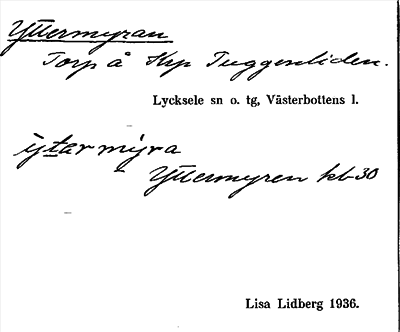 Yttermyran
Torp å Krp Tuggenliden.
Lycksele sn o. tg, Västerbottens l.
ÿtarmÿra
Yttermyren kb 30
Lisa Lidberg 1936.